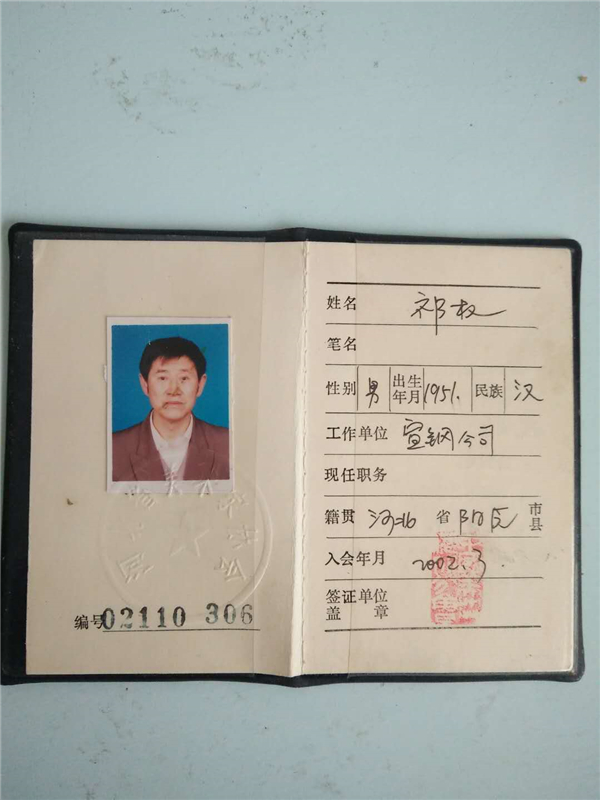 编号02110 306
姓名 祁权
笔名
性别 男 出生年月 1951. 民族 汉
工作单位 宣钢公司
现任职务
籍贯 河北 省 阳原 市县
入会年月 2002.3.
签证单位
盖章